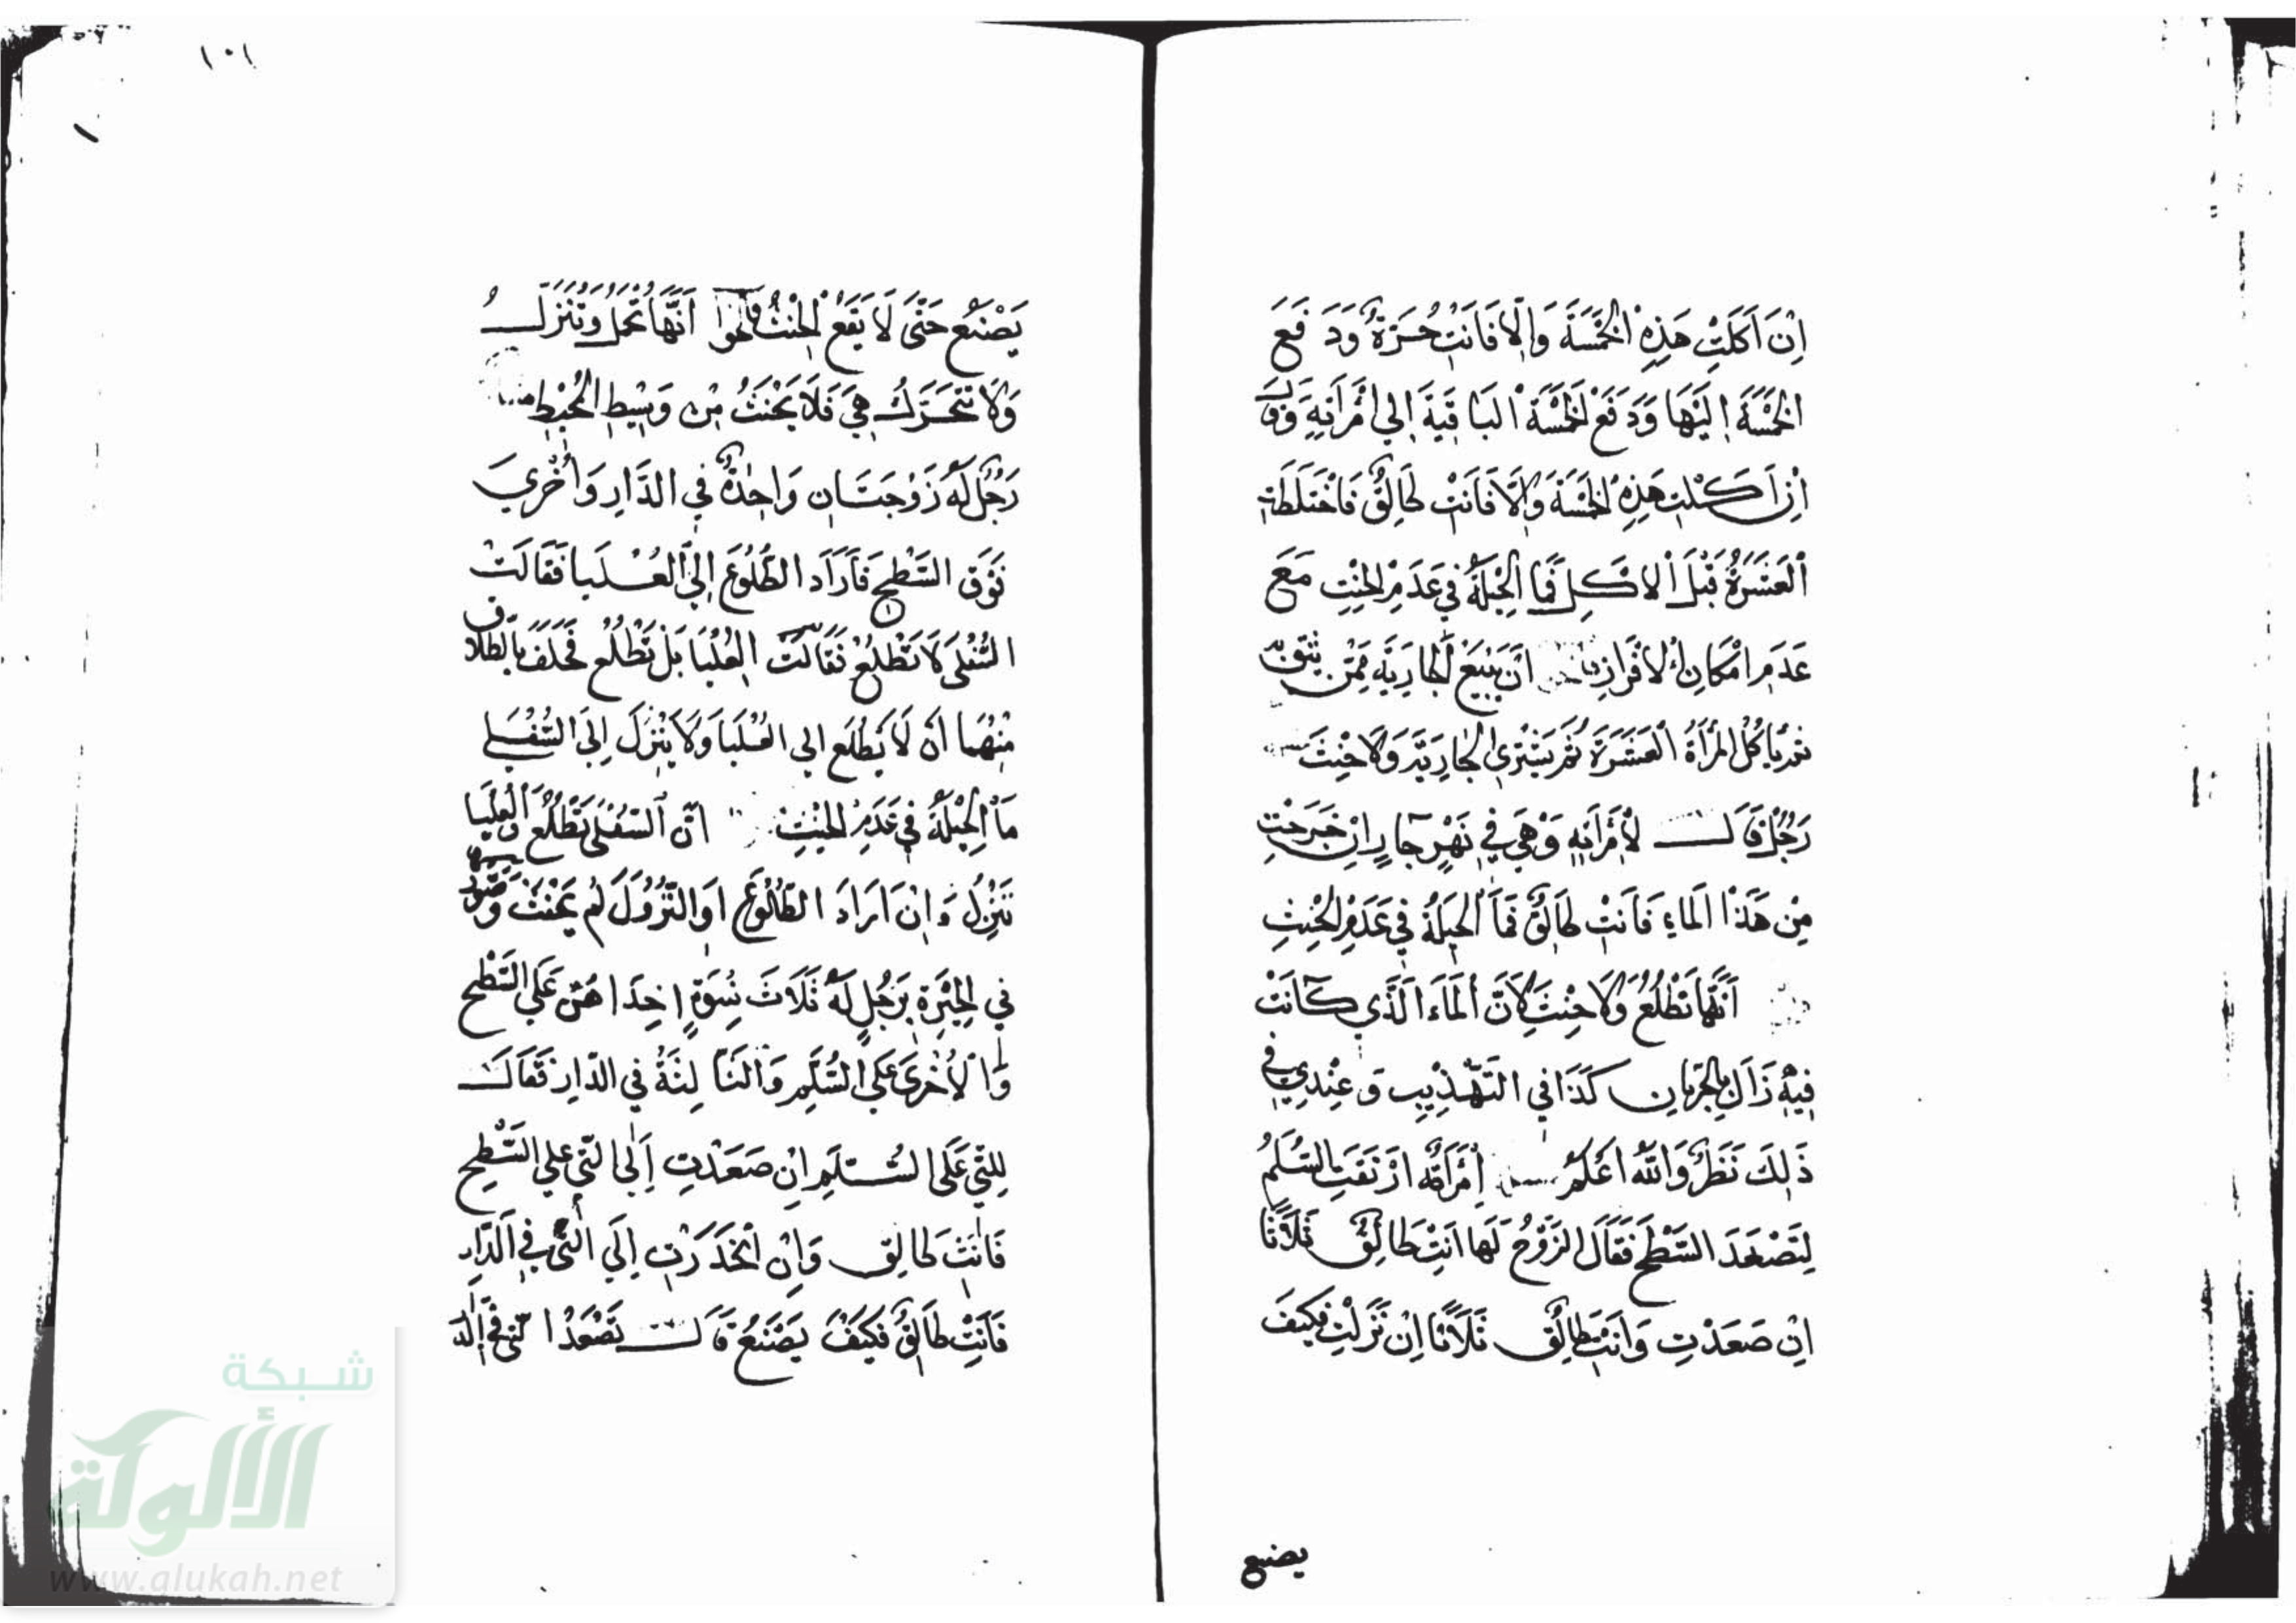 اِنْ اَكَلْتِ هَذِهِ الْخَمْسَةَ وَاِلَّا فَاَنْتِ حُرَّةٌ وَدَفَعَ
الْخَمْسَةَ اِلَيْهَا وَدَفَعَ الْخَمْسَةَ الْبَاقِيَةَ اِلي امْرَاَتِهِ وَقَالَ
اِنْ اَكَلْتِ هَذِهِ الْخَمْسَةَ وَاِلَّا فَاَنْتِ طَالِقٌ فَاخْتَلَطَتِ
الْعَشَرَةُ قَبْلَ الْاَكْلِ فَمَا الْحِيْلَةُ فِي عَدَمِ الْحِنْثِ مَعَ
عَدَمِ امْكَانِ الْاِفْرَازِ اَنْ يَبِيْعَ الْجَارِيَةَ مِمَّنْ يَثِقُ بِهِ
ثم تَاكُلُ الْمَرْاَةُ الْعَشَرَةَ ثُمَّ يَشْتَرِي الْجَارِيَةَ وَلَا حِنْثَ
رَجُلٌ قَالَ لِامْرَاَتِهِ وَهِيَ فِي نَهْرٍ جَارٍ اِنْ خَرَجْتِ
مِنْ هَذَا الْمَاءِ فَاَنْتِ طَالِقٌ فَمَا الْحِيْلَةُ فِي عَدَمِ الْحِنْثِ
اَنَّهَا تَطْلُعُ وَلَا حِنْثَ لِاَنَّ الْمَاءَ الَّذِي كَانَتْ
فِيْهِ زَالَ بِالْجَرَيَانِ كَذَا فِي التَّهْذِيبِ وَعِنْدِي فِي
ذَلِكَ نَظَرٌ وَاللّٰهُ اَعْلَمُ اِمْرَاَةٌ ارْتَقَتْ بِالسُّلَّمِ
لِتَصْعَدَ السَّطْحَ فَقَالَ الزَّوْجُ لَهَا اَنْتِ طَالِقٌ ثَلَاثًا
اِنْ صَعَدْتِ وَاَنْتِ طَالِقٌ ثَلَاثًا اِنْ نَزَلْتِ فَكَيْفَ
يصنع
١٠١
يَصْنَعُ حَتَّى لَا يَقَعَ الْحِنْثُ اَنَّهَا تُحْمَلُ وَتُنْزَلُ
وَلَا تَتَحَرَّكُ هِيَ فَلَا يَحْنَثُ مِنْ وَسِيْطِ الْمُحِيْطِ
رَجُلٌ لَهُ زَوْجَتَانِ وَاحِدَةٌ فِي الدَّارِ وَاُخْرَي
فَوْقَ السَّطْحِ فَاَرَادَ الطُّلُوعَ اِلَى الْعُلْيَا فَقَالَتْ
السُّفْلَى لَا تَطْلُعْ فَقَالَتْ الْعُلْيَا بَلْ تَطْلُعْ فَحَلَفَ بِالطَّلَاق
مِنْهُمَا اَنْ لَا يَطْلُعَ اِلي الْعُلْيَا وَلَا يَنْزِلَ اِلَى السُّفْلَى
مَا الْحِيْلَةُ فِي عَدَمِ الْحِنْثِ اَنَّ السُّفْلَى تَطْلُعُ وَالْعُلْيَا
تَنْزِلُ وَاِنْ اَرَادَ الطُّلُوْعَ اَوِ النُّزُوْلَ لَمْ يَحْنَثْ
فِي الْحِيْرَةِ رَجُلٍ لَهُ ثَلَاثُ نِسْوَةٍ اِحْدَاهُنَّ عَلَى السَّطْحِ
وَالْاُخْرَى عَلَى السُّلَّمِ وَالثَّالِثَةُ فِي الدَّارِ فَقَالَ
لِلَّتِي عَلَى السُّلَّمِ اِنْ صَعَدْتِ اِلَى الَّتِي عَلَى السَّطْحِ
فَاَنْتِ طَالِق وَاِنْ انْحَدَرْتِ اِلَى الَّتِي فِي الدَّارِ
فَاَنْتِ طَالِقٌ فَكَيْفَ يَصْنَعُ قَالَ تَصْعَدُ
شبكة
الألوكة
www.alukah.net